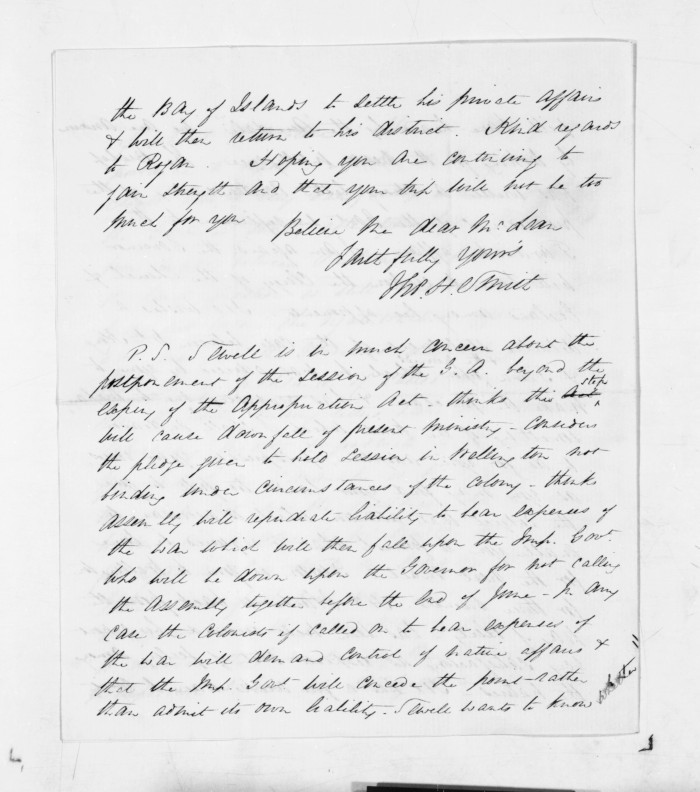 the Bay of Islands to settle his private affairs
& will then return to his district. Kind regards
to Rogan. Hoping you are continuing to
gain strength and that your trip will not be too
much for you Believe me dear McLean
Faithfully Yours
Thos. H. Smith
P. S. Sewell is in much concern about the
postponement of the Session of the G. A. beyond the
expiry of the Appropriation Act - thinks this Act stop
will cause downfall of present Ministry - considers
the pledge given to hold Session in Wellington not
binding under circumstances of the colony - thinks
Assembly will repudiate liability to bear expenses of
the war which will then fall upon the Imp. Govt.
who will be down upon the Governor for not calling
the Assembly together before the end of June - In any
case the Colonists if called on to bear expenses of
the war will demand control of native affairs &
that the Imp. Govt. will concede the point - rather
than admit its own liability. Sewell wants to know
whether